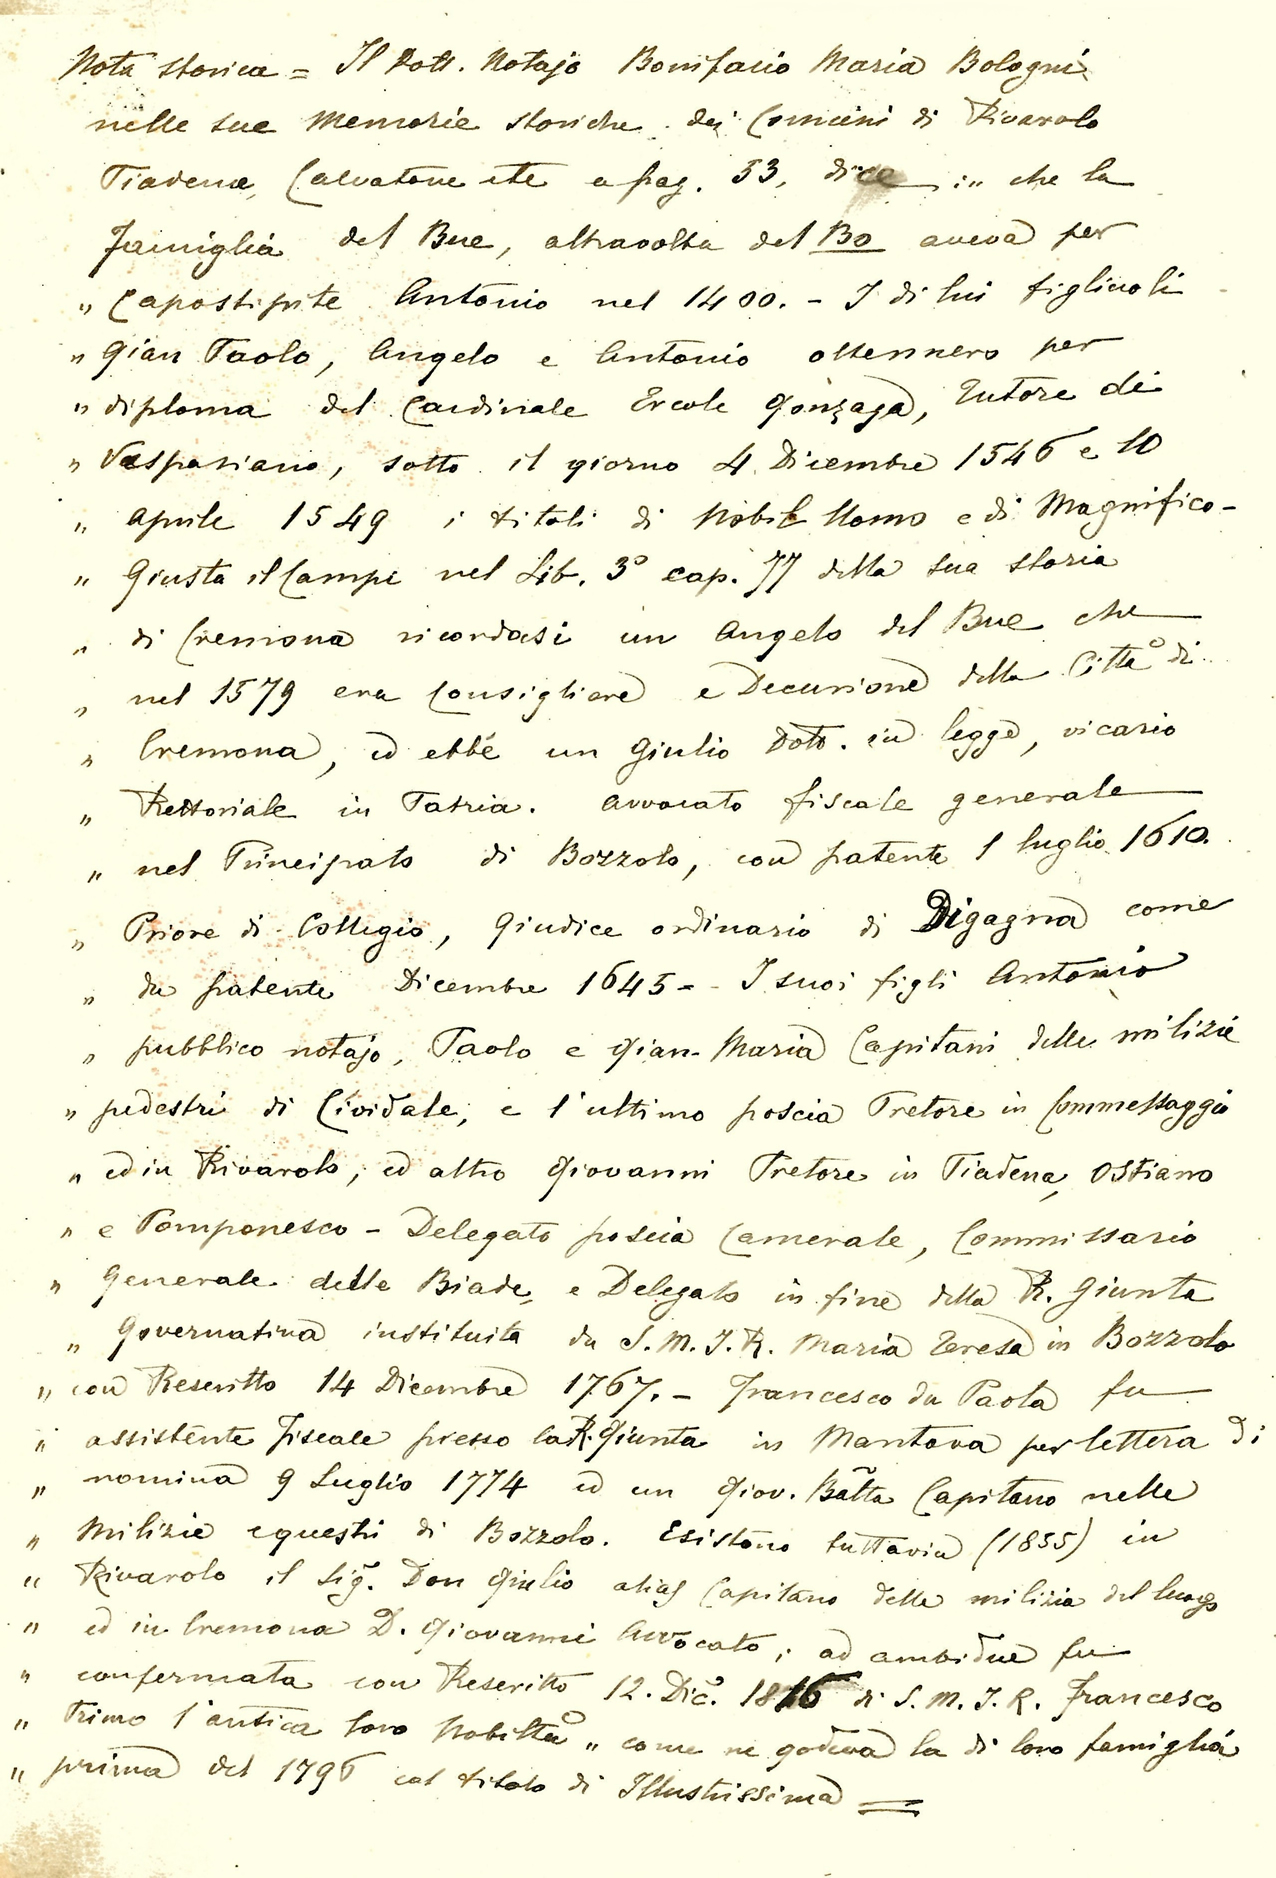 Nota storica = Il Dott. Notajo Bonifacio Maria Bologni
nelle sue memorie storiche dei Comuni di Rivarolo
Piadena, Calvatone ete a pag. 53, dice :„ che la
famiglia del Bue, altravolta del Bo aveva per
„ Capostipite Antonio nel 1400. - I di lui figliuoli
„ Gian Paolo, Angelo e Antonio ottennero per
„ diploma del Cardinale Ercole Gonzaga, Tutore di
„ Vespasiano, sotto il giorno 4 Dicembre 1546 e 10
„ Aprile 1549 i titoli di Nobil Uomo e di Magnifico -
„ Giusta il Campi nel Lib. 3° cap. 77 della sua storia
„ di Cremona ricordasi un Angelo del Bue che
„ nel 1579 era Consigliere e Decurione della Città di
„ Cremona, ed ebbe un Giulio Dott. in legge, vicario
„ Rettoriale in Patria. Avvocato fiscale generale
„ nel Principato di Bozzolo, con patente 1 luglio 1610.
„ Priore di Collegio, Giudice ordinario di Digagna come
„ da patente Dicembre 1645 - I suoi figli Antonio
„ pubblico notajo, Paolo e Gian-Maria Capitani delle milizie
„ pedestri di Cividale, e l'ultimo poscia Pretore in Commessaggio
„ ed in Rivarolo, ed altro Giovanni Pretore in Piadena, Ostiano
„ e Pomponesco - Delegato poscia Camerale, Commissario
„ Generale delle Biade, e Delegato in fine della R. Giunta
„ Governativa instituita da S. M. I. R. Maria Teresa in Bozzolo
„ con Rescritto 14 Dicembre 1767. - Francesco da Paola fu
„ assistente fiscale presso la R. Giunta in Mantova per lettera di
„ nomina 9 Luglio 1774 ed un Giov. Batta Capitano nelle
„ Milizie equestri di Bozzolo. Esistono tuttavia (1855) in
„ Rivarolo il Sig. Don Giulio alias Capitano delle milizia del luogo
„ ed in Cremona D. Giovanni Avvocato, ad ambidue fu
„ confermata con Rescritto 12. Dic. 1816 di S. M. I. R. Francesco
„ Primo l'antica loro Nobiltà „ come ne godeva la di loro famiglia
„ prima del 1796 col titolo di Illustrissima